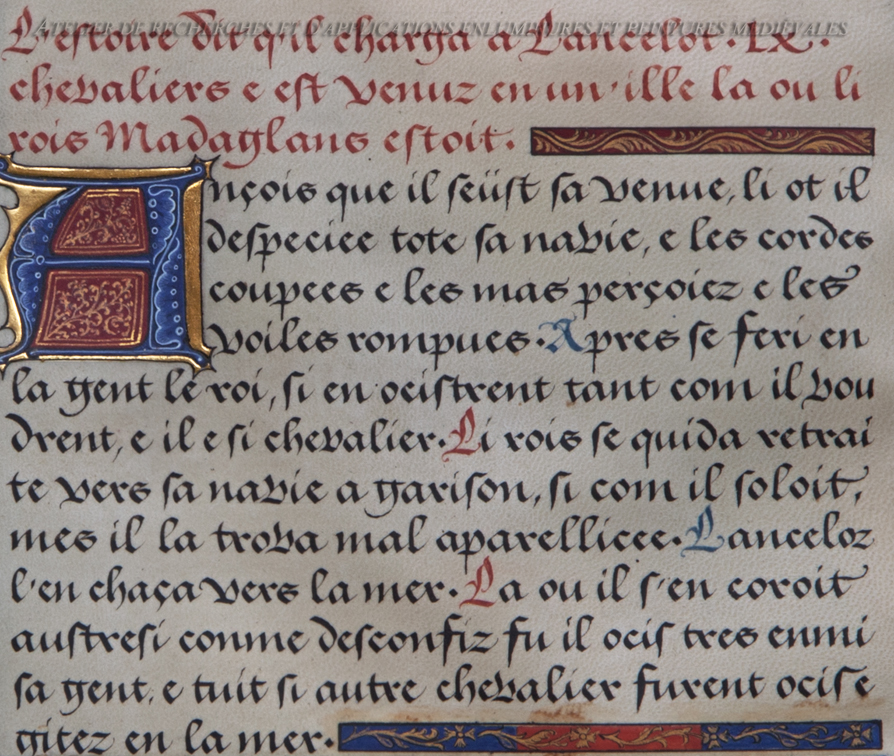 ATELIER DE RECHERCHES ET D'APPLICATIONS ENLUMINURES ET PEINTURES MEDIÉVALES
L'estoire dit q'il charga a Lancelot · LX ·
chevaliers e est venuz en un' ille la ou li
rois Madaglans estoit.
Ançois que il seüst sa venue, li ot il
despeciee tote sa navie, e les cordes
coupees e les mas perçoiez e les
voiles rompues. Apres se feri en
la gent le roi, si en ocistrent tant com il vou
drent, e il e si chevalier. Li rois se quida retrai
te vers sa navie a garison, si com il soloit,
mes il la trova mal aparelliee. Lanceloz
l'en chaça vers la mer. La ou il s'en coroit
austresi conme desconfiz fu il ocis tres enmi
sa gent, e tuit si autre chevalier furent ocis e
gitez en la mer.